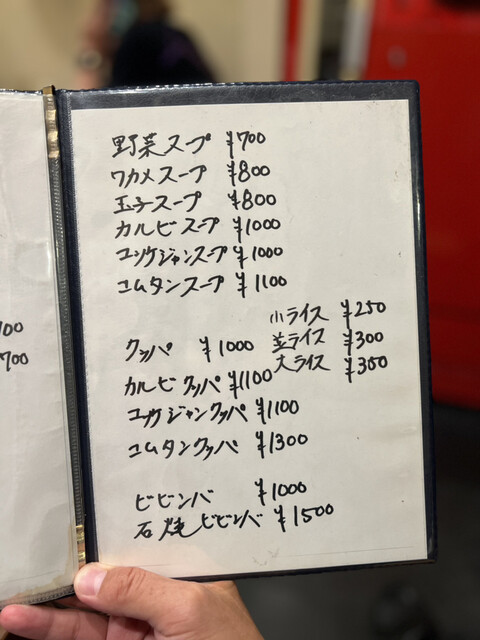 野菜スープ ¥700
ワカメスープ ¥800
玉子スープ ¥800
カルビスープ ¥1000
ユッケジャンスープ ¥1000
コムタンスープ ¥1100
小ライス ¥250
並ライス ¥300
大ライス ¥350
クッパ ¥1000
カルビクッパ ¥1100
ユッケジャンクッパ ¥1100
コムタンクッパ ¥1300
ビビンバ ¥1000
石焼ビビンバ ¥1500
100
700